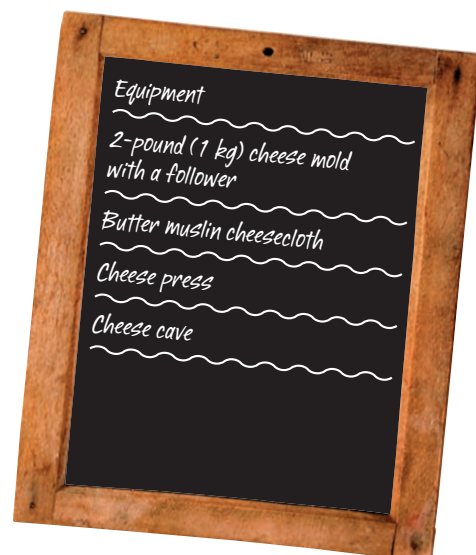 Equipment
2-pound (1 kg) cheese mold
with a follower
Butter muslin cheesecloth
Cheese press
Cheese cave